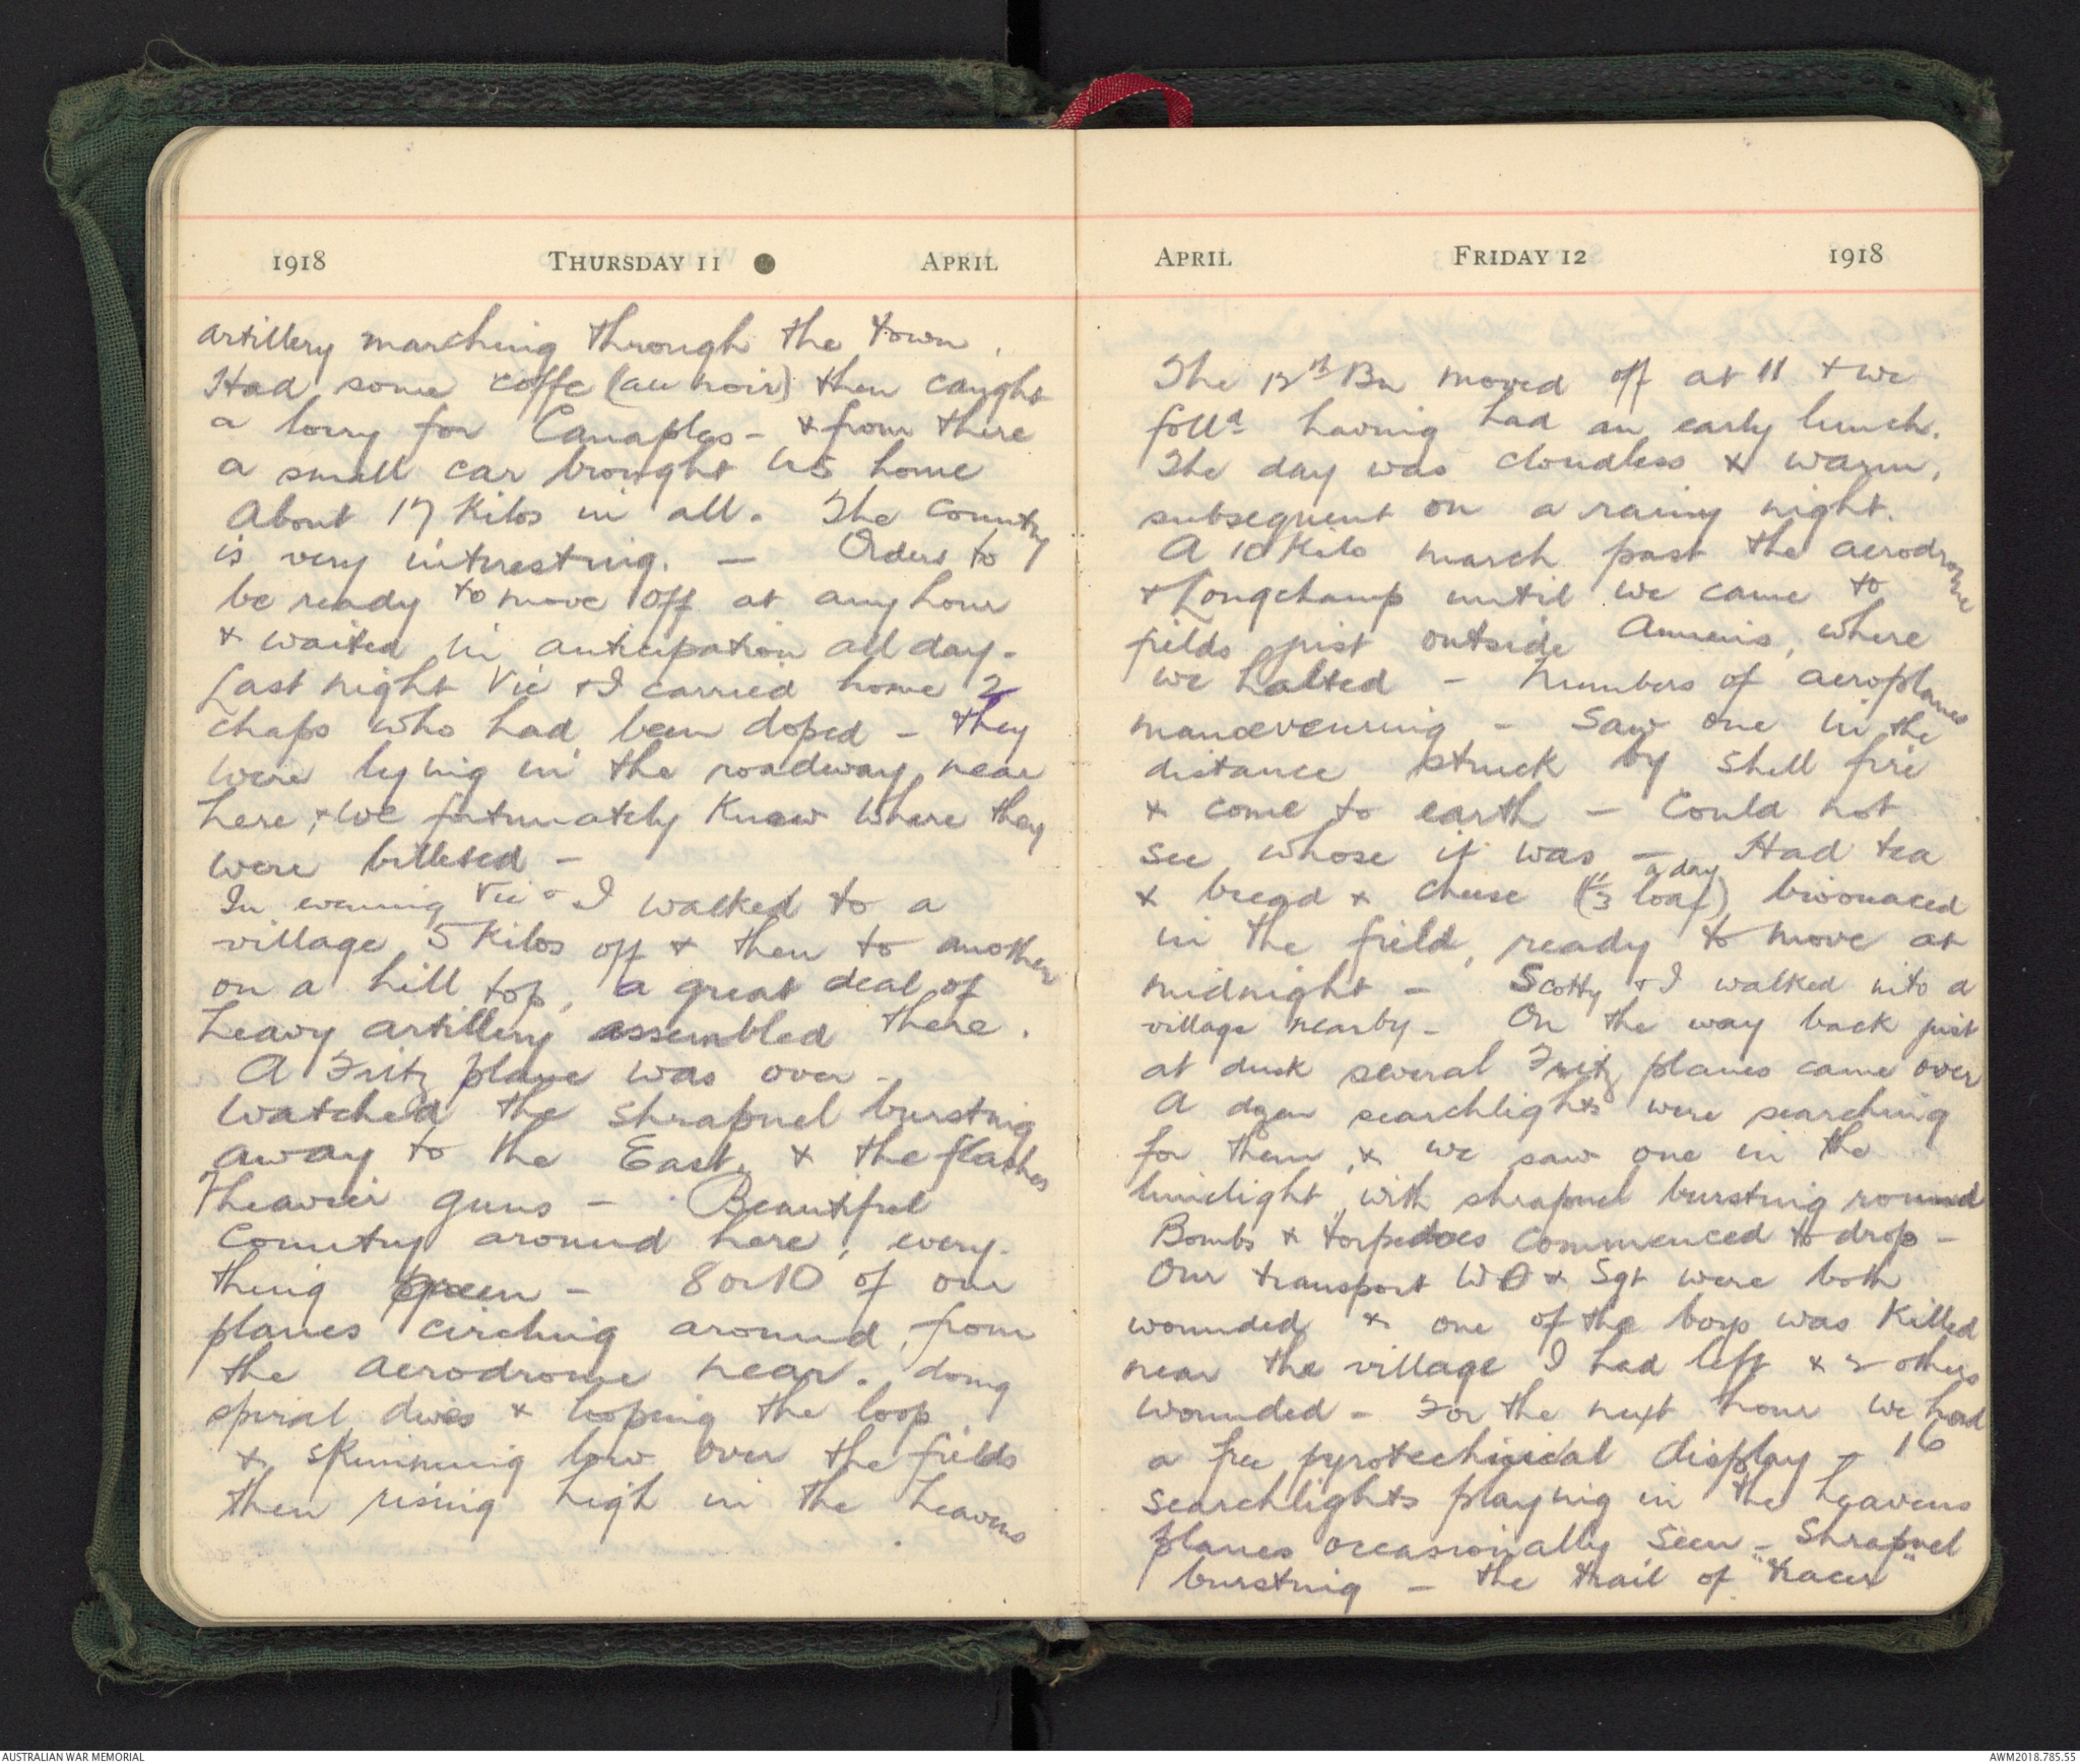 1918 THURSDAY 11 APRIL
artillery marching through the town.
Had some coffe (au noir) then caught
a lorry for Canaples - & from there
a small car brought us home
About 17 Kilos in all. The Country
is very interesting. - Orders to
be ready to move off at any hour
& waited in anticipation all day.
Last night Vic & I carried home 2
chaps who had been doped - they
were lying in the roadway near
here, & we fortunately knew where they
were billeted -
In evening Vic & I walked to a
village 5 Kilos off & then to another
on a hill top, a great deal of
heavy artillery assembled there.
A Fritz plane was over -
watched the shrapnel bursting
away to the East, & the flashes
heavier guns - Beautiful
Country around here, every-
thing green - 8 or 10 of our
planes circling around, from
the aerodrome near. doing
spiral dives & looping the loop
& skimming low over the fields
then rising high in the heavens
APRIL FRIDAY 12 1918
The 12th Bn moved off at 11 & we
folld having had an early lunch.
The day was cloudless & warm,
subsequent on a rainy night.
A 10 Kilo march past the aerodrome
& Longchamp until we came to
fields just outside Amiens, where
we halted - Numbers of aeroplanes
manoeveuring - Saw one in the
distance struck by shell fire
& come to earth - Could not
see whose it was - Had tea
& bread & cheese (1/3 loaf a day) bivouaced
in the field, ready to move at
midnight - Scotty & I walked into a
village nearby - On the way back just
at dusk several Fritz planes came over
A dozen searchlights were searching
for them, & we saw one in the
limelight, with shrapnel bursting round
Bombs & torpedoes commenced to drop -
Our transport WO & Sgt were both
wounded & one of the boys was killed
near the village I had left & 2 others
wounded - For the next hour we had
a free pyrotechnical display - 16
searchlights playing in the heavens
planes occasionally seen - Shrapnel
bursting - the trail of "tracer"
AUSTRALIAN WAR MEMORIAL AWM2018.785.55